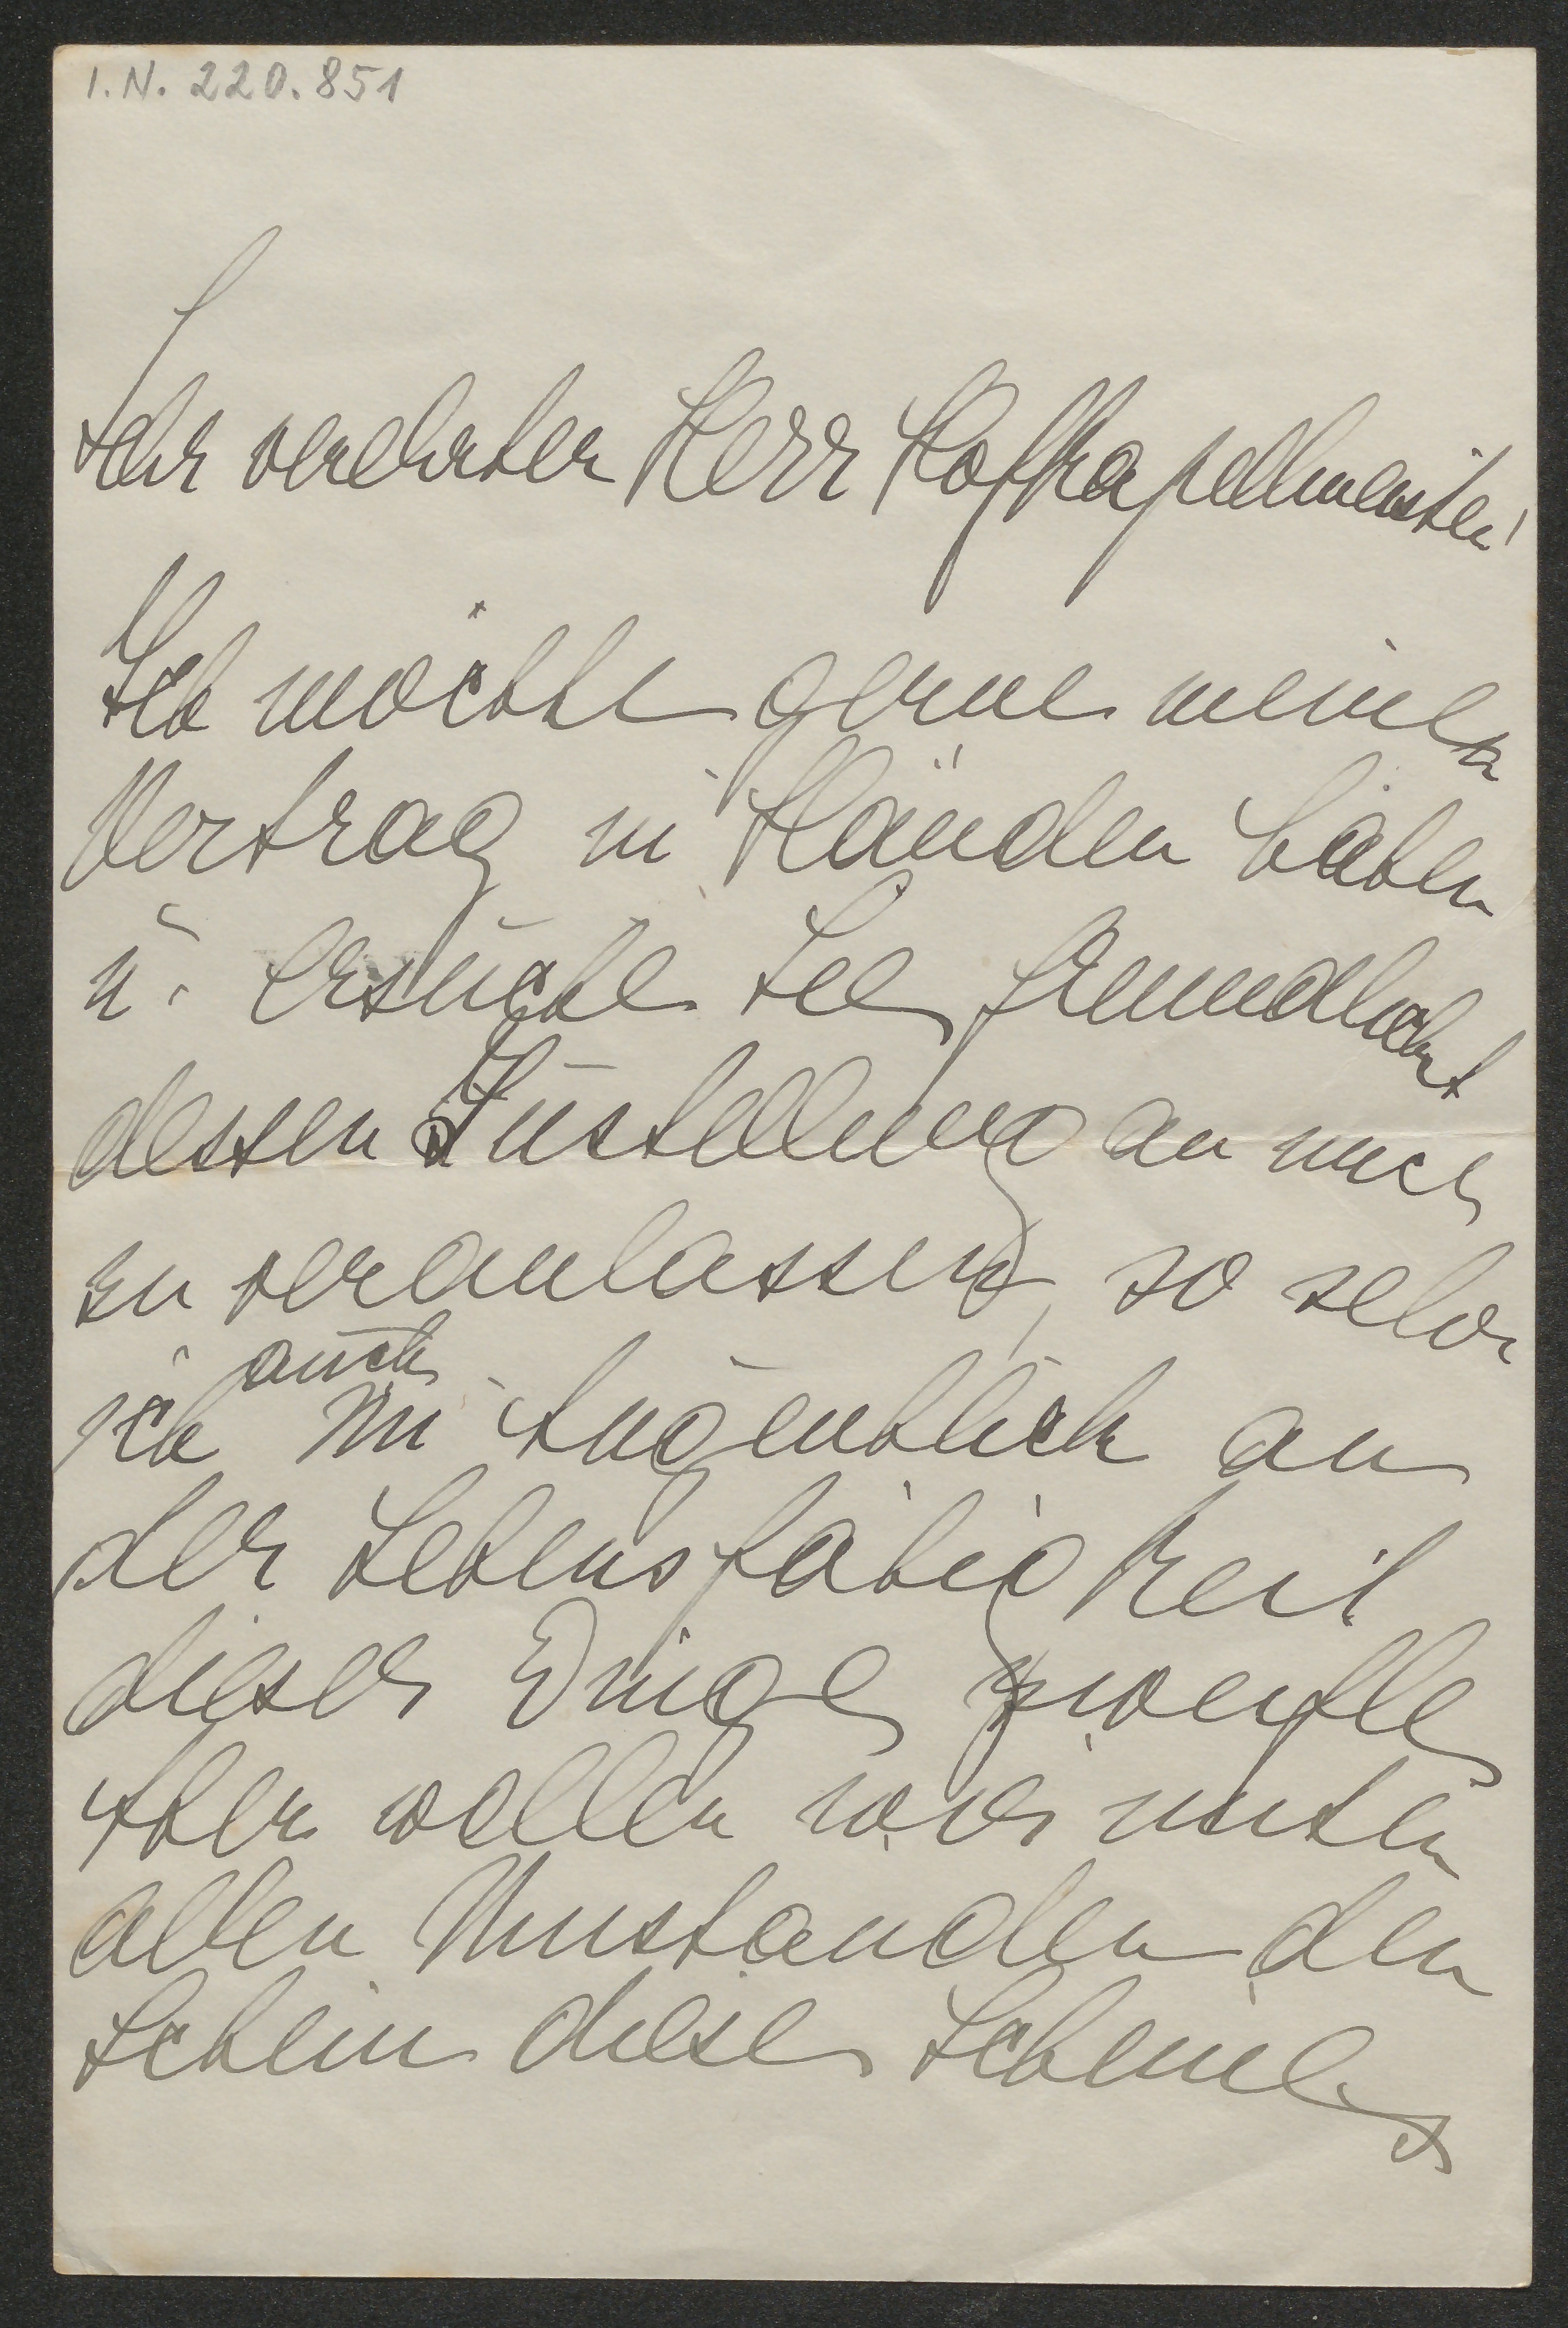 I.N. 220.851
Sehr verehrter Herr Hofkapellmeister!
Ich möchte gerne meinen
Vertrag in Händen haben
u. ersuche Sie freundlichst
dessen Zustellung an mich
zu veranlassen, so sehr
auch
ich im Augenblick an
der Lebensfähigkeit
dieser Dinge zweifle
Aber wollen wir unter
allen Umständen den
Schein dieses Scheines